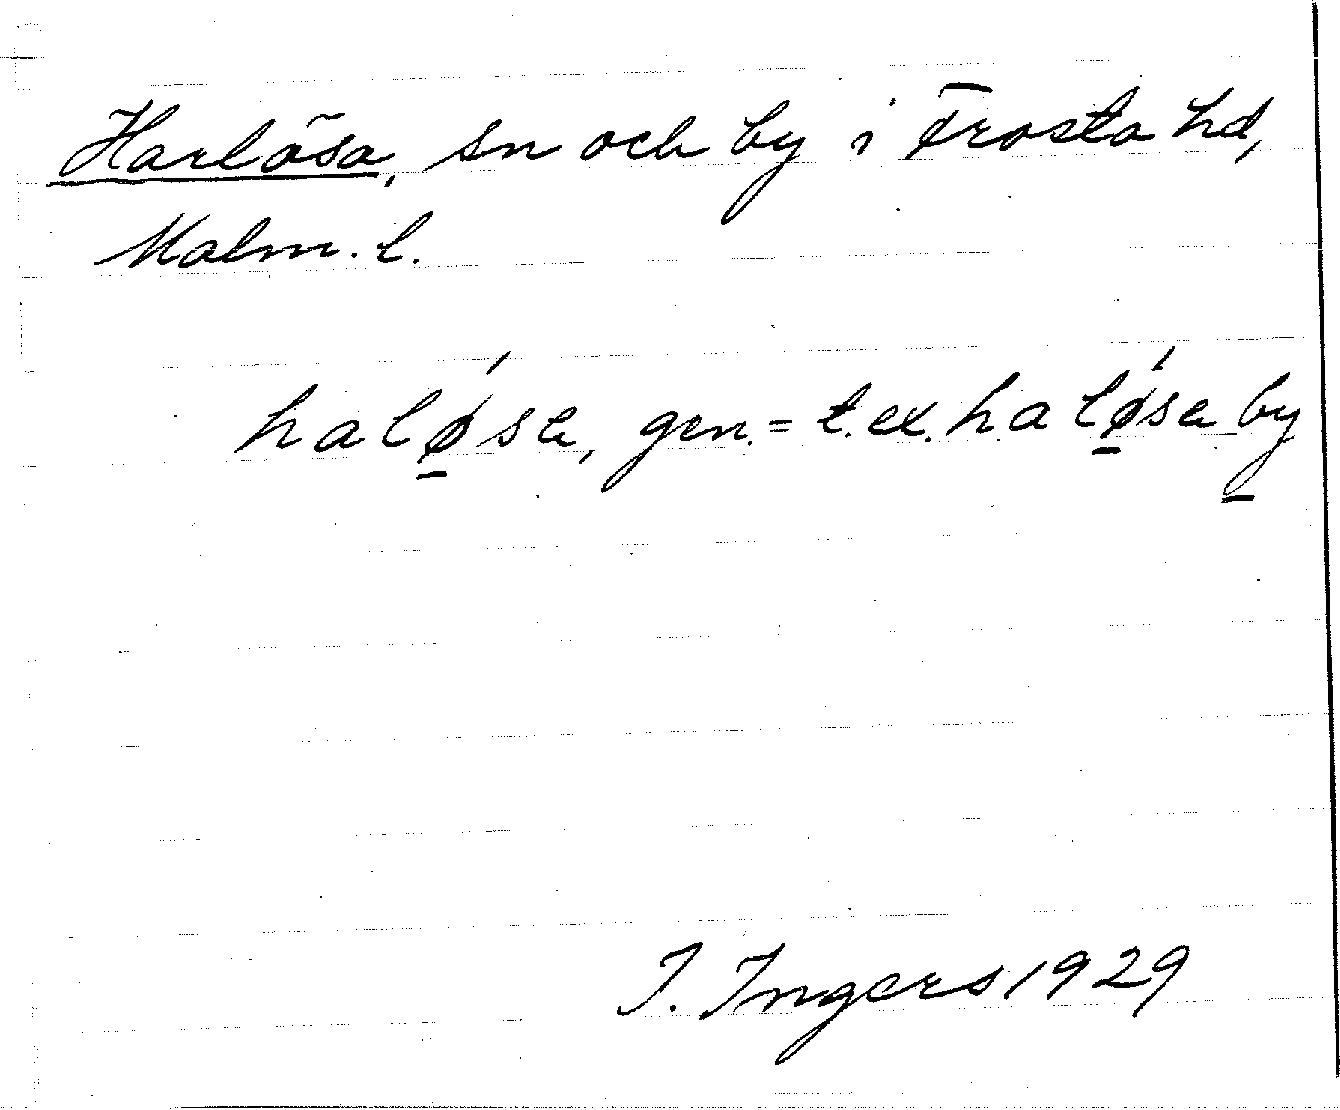 Harlösa, sn och by i Frosta hd,
Malm. l.
halǿ̱sa, gen. = t.ex. halǿ̱sa by̱
I. Ingers 1929